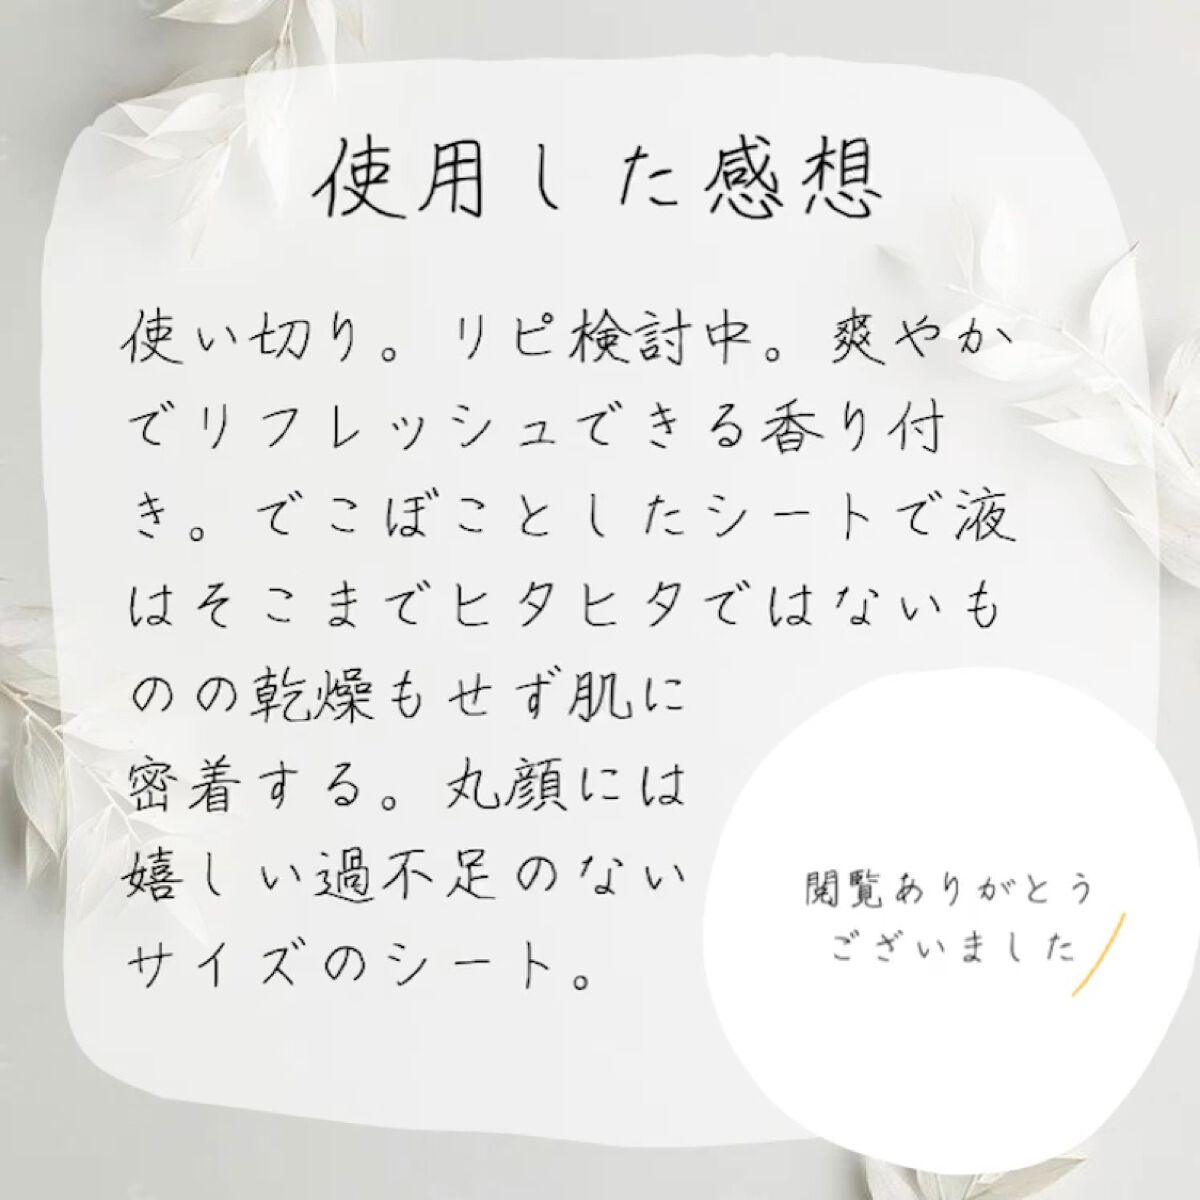 使用した感想
使い切り。リピ検討中。爽やか
でリフレッシュできる香り付
き。でこぼことしたシートで液
はそこまでヒタヒタではないも
のの乾燥もせず肌に
密着する。丸顔には
嬉しい過不足のない
サイズのシート。
閲覧ありがとう
ございました